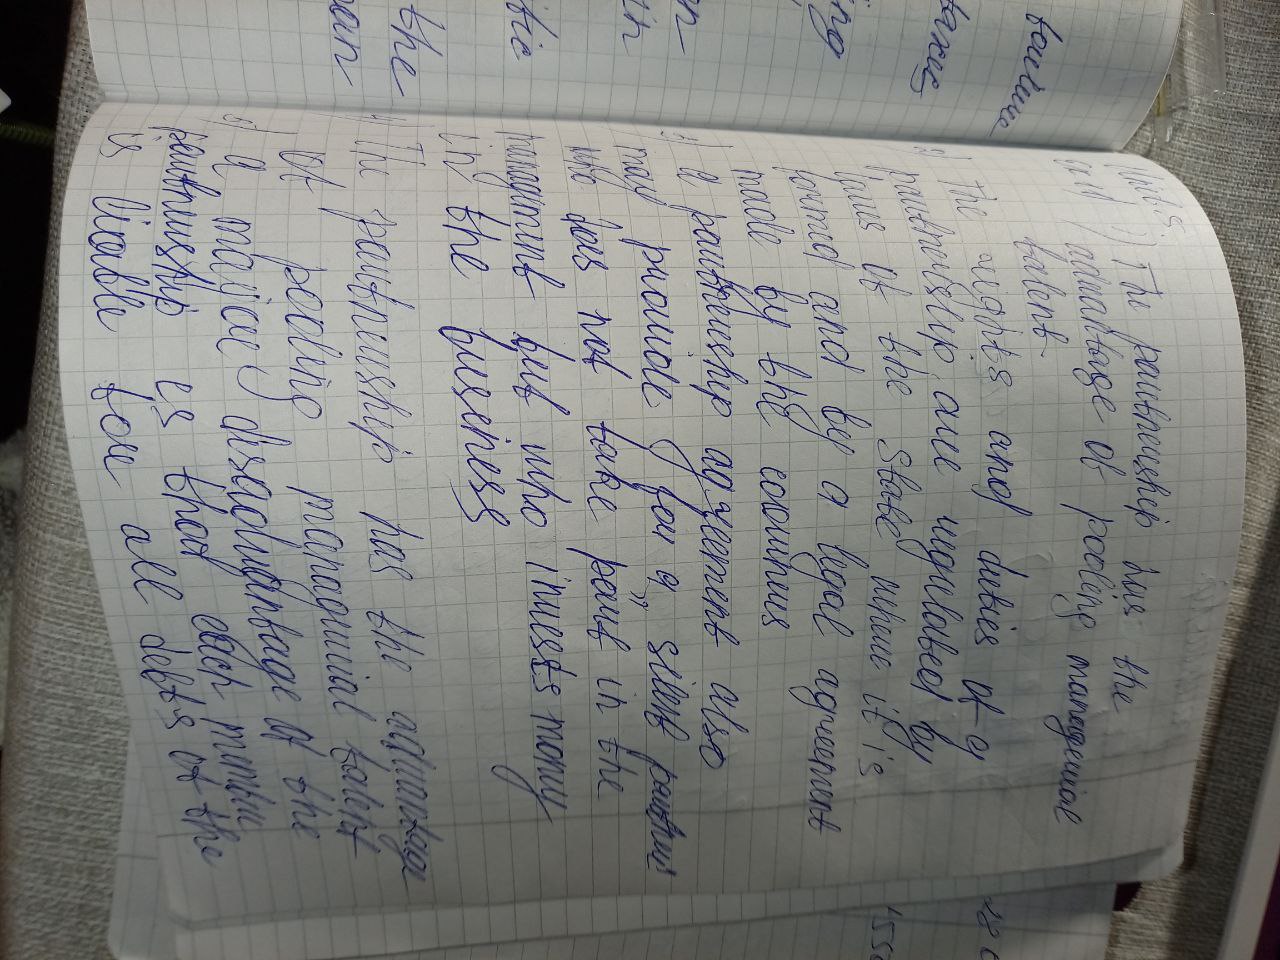 Unit 5.
ca 11 1) The partnership has the
advantage of pooling managerial
talent
2) The rights and duties of a
partnership are regulated by
laws of the State where it is
formed and by a legal agreement
made by the cowners
3) a partnership agreement also
may provide for a „ silent partner
who does not take part in the
management but who invests mony
in the business
4) The partnership has the advantage
of pooling managerial talent
5) a major disadvantage of the
partnership is that each member
is liable for all debts of the
failure
taxes
ing
in
on
tic
the
can